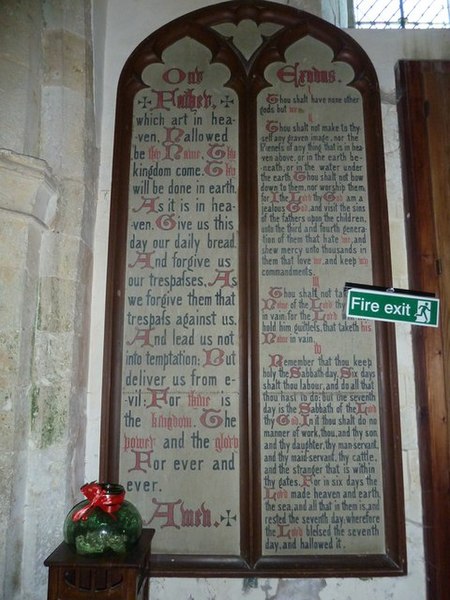 Our
Father,
which art in hea-
ven. Hallowed
be thy Name. Thy
kingdom come. Thy
will be done in earth.
As it is in hea-
ven. Give us this
day our daily bread.
And forgive us
our trespaſses. As
we forgive them that
trespaſs against us.
And lead us not
into temptation: But
deliver us from e-
vil: For thine is
the kingdom. The
power and the glory
For ever and
ever.
Amen.
Exodus.
I
Thou shalt have none other
gods but me.
II
Thou shalt not make to thy-
self any graven image, nor the
likeneſs of any thing that is in hea-
ven above, or in the earth be-
neath, or in the water under
the earth. Thou shalt not bow
down to them, nor worship them,
for I the Lord thy God am a
jealous God, and visit the sins
of the fathers upon the children,
unto the third and fourth genera-
tion of them that hate me, and
shew mercy unto thousands in
them that love me, and keep my
commandments.
III
Thou shalt not
Name of the Lord
in vain: for the Lord
hold him guiltleſs, that taketh his
Name in vain.
IV
Remember that thou keep
holy the Sabbath day. Six days
shalt thou labour, and do all that
thou hast to do: but the seventh
day is the Sabbath of the Lord
thy God. In it thou shalt do no
manner of work, thou, and thy son,
and thy daughter, thy man-servant,
and thy maid-servant, thy cattle,
and the stranger that is within
thy gates. For in six days the
Lord made heaven and earth,
the sea, and all that in them is, and
rested the seventh day: wherefore
the Lord bleſsed the seventh
day, and hallowed it.
Fire exit